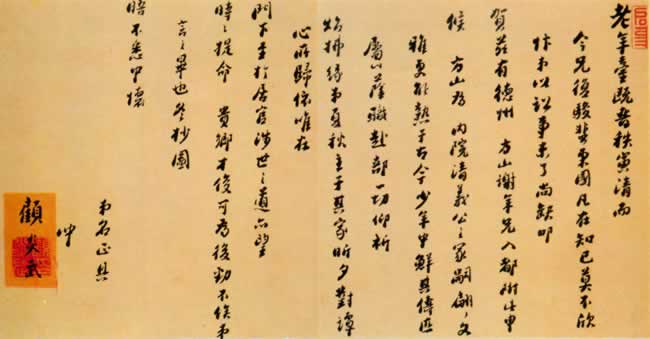 老年臺既晉秩寅清而
今兄復駿蜚東國凡在知己莫不欣
忭弟以訟事未了尚缺叩
賀茲有德州 方山謝年兄入都附此申
候 方山為 內院清義公之冢嗣翩々文
雅更能熟于古今少年中鮮其儔匹
屬以蔭職赴部一切仰祈
炤拂緣弟夏秋主于其家昕夕對譚
心所歸依唯在
門下至於居官涉世之道亦望
時々提命 貴鄉才俊可為後勁不俟弟
言之畢也冬杪圖
晤不悉中懷
弟名正具
顧炎武